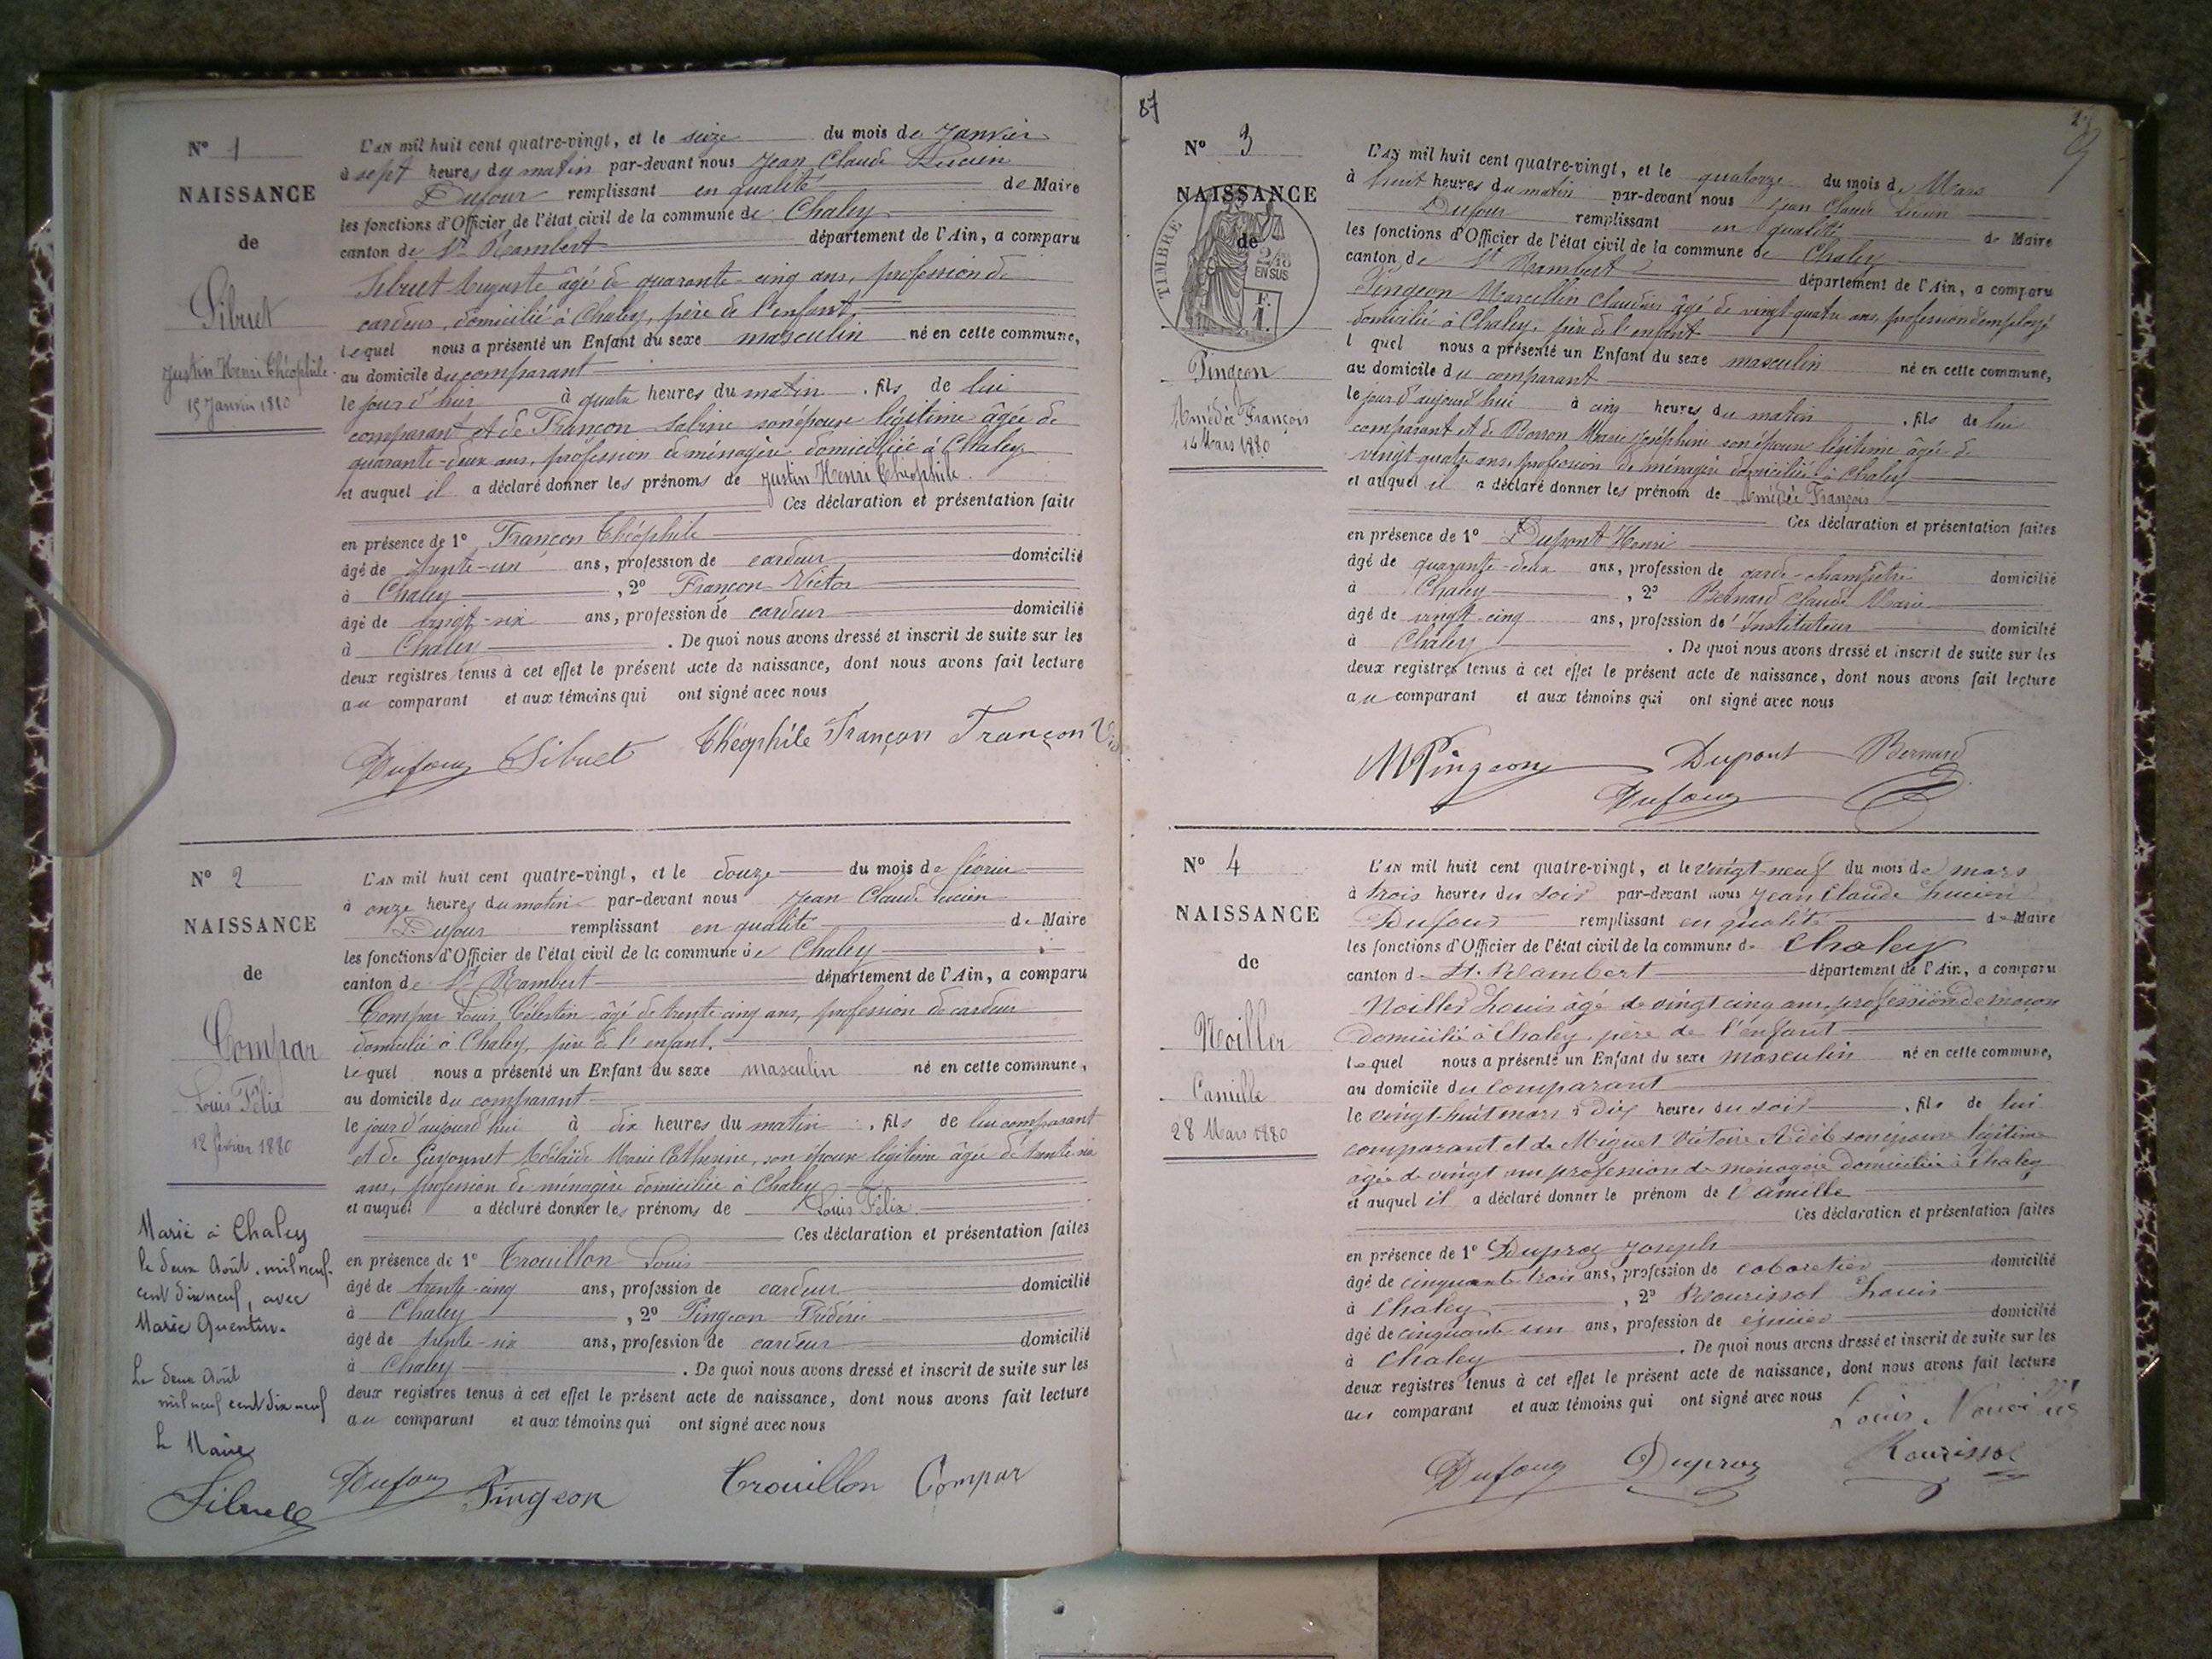 N° 1
NAISSANCE
de
Sibuet
Justin Henri Théophile
15 Janvier 1880
L'AN mil huit cent quatre-vingt, et le seize du mois de Janvier
à sept heures du matin par-devant nous Jean Claude Lucien
Dufour remplissant en qualité de Maire
les fonctions d'Officier de l'état civil de la commune de Chaley
canton de St Rambert département de l'Ain, a comparu
Sibuet Auguste âgé de quarante-cinq ans, profession de
cardeur, domicilié à Chaley, père de l'enfant,
lequel nous a présenté un Enfant du sexe masculin né en cette commune,
au domicile du comparant
le jour d'hier à quatre heures du matin, fils de lui
comparant et de Françon Sabine son épouse légitime âgée de
quarante-deux ans, profession de ménagère domiciliée à Chaley
et auquel il a déclaré donner les prénoms de Justin Henri Théophile.
Ces déclaration et présentation faite
en présence de 1° Françon Théophile
âgé de trente-un ans, profession de cardeur domicilié
à Chaley, 2° Françon Victor
âgé de vingt-six ans, profession de cardeur domicilié
à Chaley. De quoi nous avons dressé et inscrit de suite sur les
deux registres tenus à cet effet le présent acte de naissance, dont nous avons fait lecture
au comparant et aux témoins qui ont signé avec nous
Dufour Sibuet Théophile Françon Françon
N° 2
NAISSANCE
de
Compar
Louis Félix
12 février 1880
Marié à Chaley
le deux Août mil neuf
cent dix neuf, avec
Marie Quentin.
Le deux Août
mil neuf cent dix neuf
Le Maire
Sibuet
L'AN mil huit cent quatre-vingt, et le douze du mois de février
à onze heures du matin par-devant nous Jean Claude Lucien
Dufour remplissant en qualité de Maire
les fonctions d'Officier de l'état civil de la commune de Chaley
canton de St Rambert département de l'Ain, a comparu
Compar Louis Célestin âgé de trente cinq ans, profession de cardeur
domicilié à Chaley, père de l'enfant.
lequel nous a présenté un Enfant du sexe masculin né en cette commune,
au domicile du comparant
le jour d'aujourd'hui à dix heures du matin, fils de lui comparant
et de Adélaïde Marie Catherine, son épouse légitime âgée de trente six
ans, profession de ménagère domiciliée à Chaley
et auquel a déclaré donner les prénoms de Louis Félix
Ces déclaration et présentation faites
en présence de 1° Trouillon Louis
âgé de trente-cinq ans, profession de cardeur domicilié
à Chaley, 2° Pingeon Frédéric
âgé de trente-six ans, profession de cardeur domicilié
à Chaley. De quoi nous avons dressé et inscrit de suite sur les
deux registres tenus à cet effet le présent acte de naissance, dont nous avons fait lecture
au comparant et aux témoins qui ont signé avec nous
Dufour Pingeon Trouillon Compar
87
N° 3
NAISSANCE
de
TIMBRE
2/10
EN SUS
F.
1.
Pingeon
Amédée François
14 Mars 1880
L'AN mil huit cent quatre-vingt, et le quatorze du mois de Mars
à huit heures du matin par-devant nous Jean Claude Lucien
Dufour remplissant en qualité de Maire
les fonctions d'Officier de l'état civil de la commune de Chaley
canton de St Rambert département de l'Ain, a comparu
Pingeon Marcellin Claudius âgé de vingt-quatre ans, profession d'employé
domicilié à Chaley, père de l'enfant
l quel nous a présenté un Enfant du sexe masculin né en cette commune,
au domicile du comparant
le jour d'aujourd'hui à cinq heures du matin, fils de lui
comparant et de Borron Marie Joséphine son épouse légitime âgée de
vingt quatre ans, profession de ménagère domiciliée à Chaley
et auquel il a déclaré donner les prénom de Amédée François
Ces déclaration et présentation faites
en présence de 1° Dupont Henri
âgé de quarante-deux ans, profession de garde-champêtre domicilié
à Chaley, 2° Bernard Claude Marie
âgé de vingt-cinq ans, profession de Instituteur domicilié
à Chaley. De quoi nous avons dressé et inscrit de suite sur les
deux registres tenus à cet effet le présent acte de naissance, dont nous avons fait lecture
au comparant et aux témoins qui ont signé avec nous
MPingeon Dupont Bernard
Dufour
N° 4
NAISSANCE
de
Noiller
Camille
28 Mars 1880
L'AN mil huit cent quatre-vingt, et le vingt-neuf du mois de mars
à trois heures du soir par-devant nous Jean Claude Lucien
Dufour remplissant en qualité de Maire
les fonctions d'Officier de l'état civil de la commune d Chaley
canton d St. Rambert département de l'Ain, a comparu
Noiller Louis âgé de vingt cinq ans, profession de maçon
domicilié à Chaley, père de l'enfant
lequel nous a présenté un Enfant du sexe masculin né en cette commune,
au domicile du comparant
le vingt-huit mars à dix heures du soir, fils de lui
comparant et de Miguet Victoire Adèle son épouse légitime
âgée de vingt un profession de ménagère domiciliée à Chaley
et auquel il a déclaré donner le prénom de Camille
Ces déclaration et présentation faites
en présence de 1° Dupraz Joseph
âgé de cinquante trois ans, profession de cabaretier domicilié
à Chaley, 2° Rourissol Louis
âgé de cinquante un ans, profession de épicier domicilié
à Chaley. De quoi nous avons dressé et inscrit de suite sur les
deux registres tenus à cet effet le présent acte de naissance, dont nous avons fait lecture
au comparant et aux témoins qui ont signé avec nous
Louis
Dufour Dupraz Rourissol